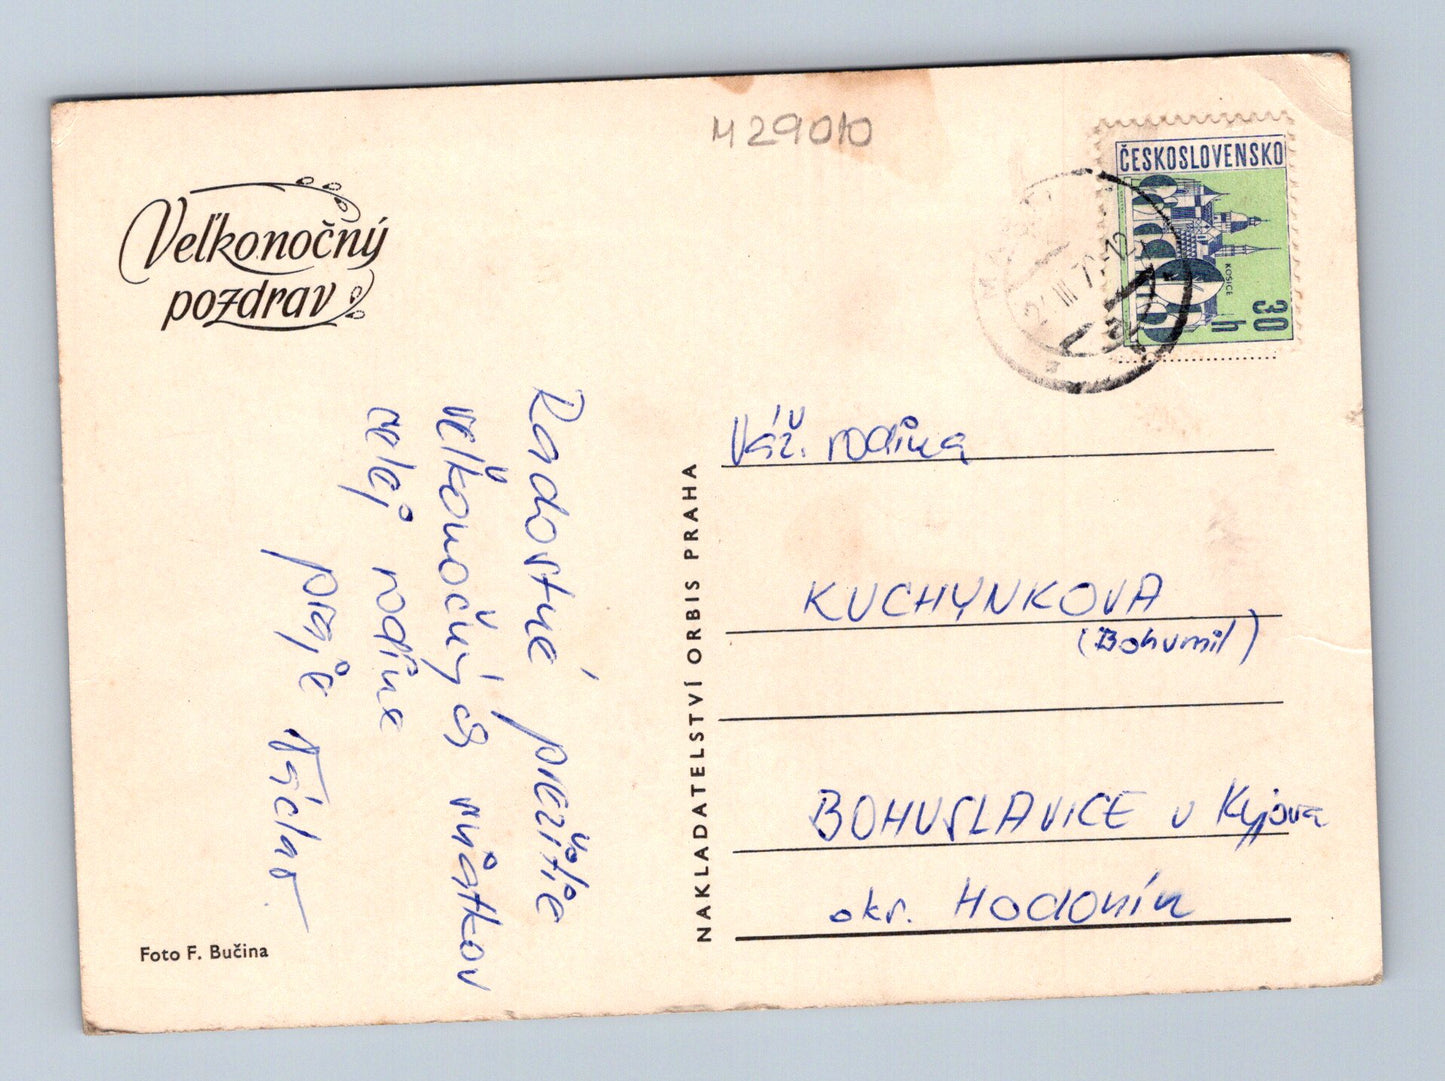 M29010
Veľkonočný
pozdrav
ČESKOSLOVENSKO
KOŠICE
30
h
Radostné prežitie
veľkonočných sviatkov
celej rodine
praje Václav
Váž. rodina
KUCHYNKOVA
(Bohumil)
BOHUSLAVICE u Kyjova
okr. Hodonín
NAKLADATELSTVÍ ORBIS PRAHA
Foto F. Bučina